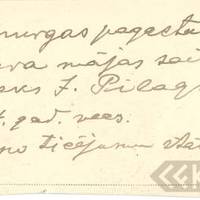 nurgas pagasta
mājas sai
J. Pilag
gad. vecs.
no ticējumu stās